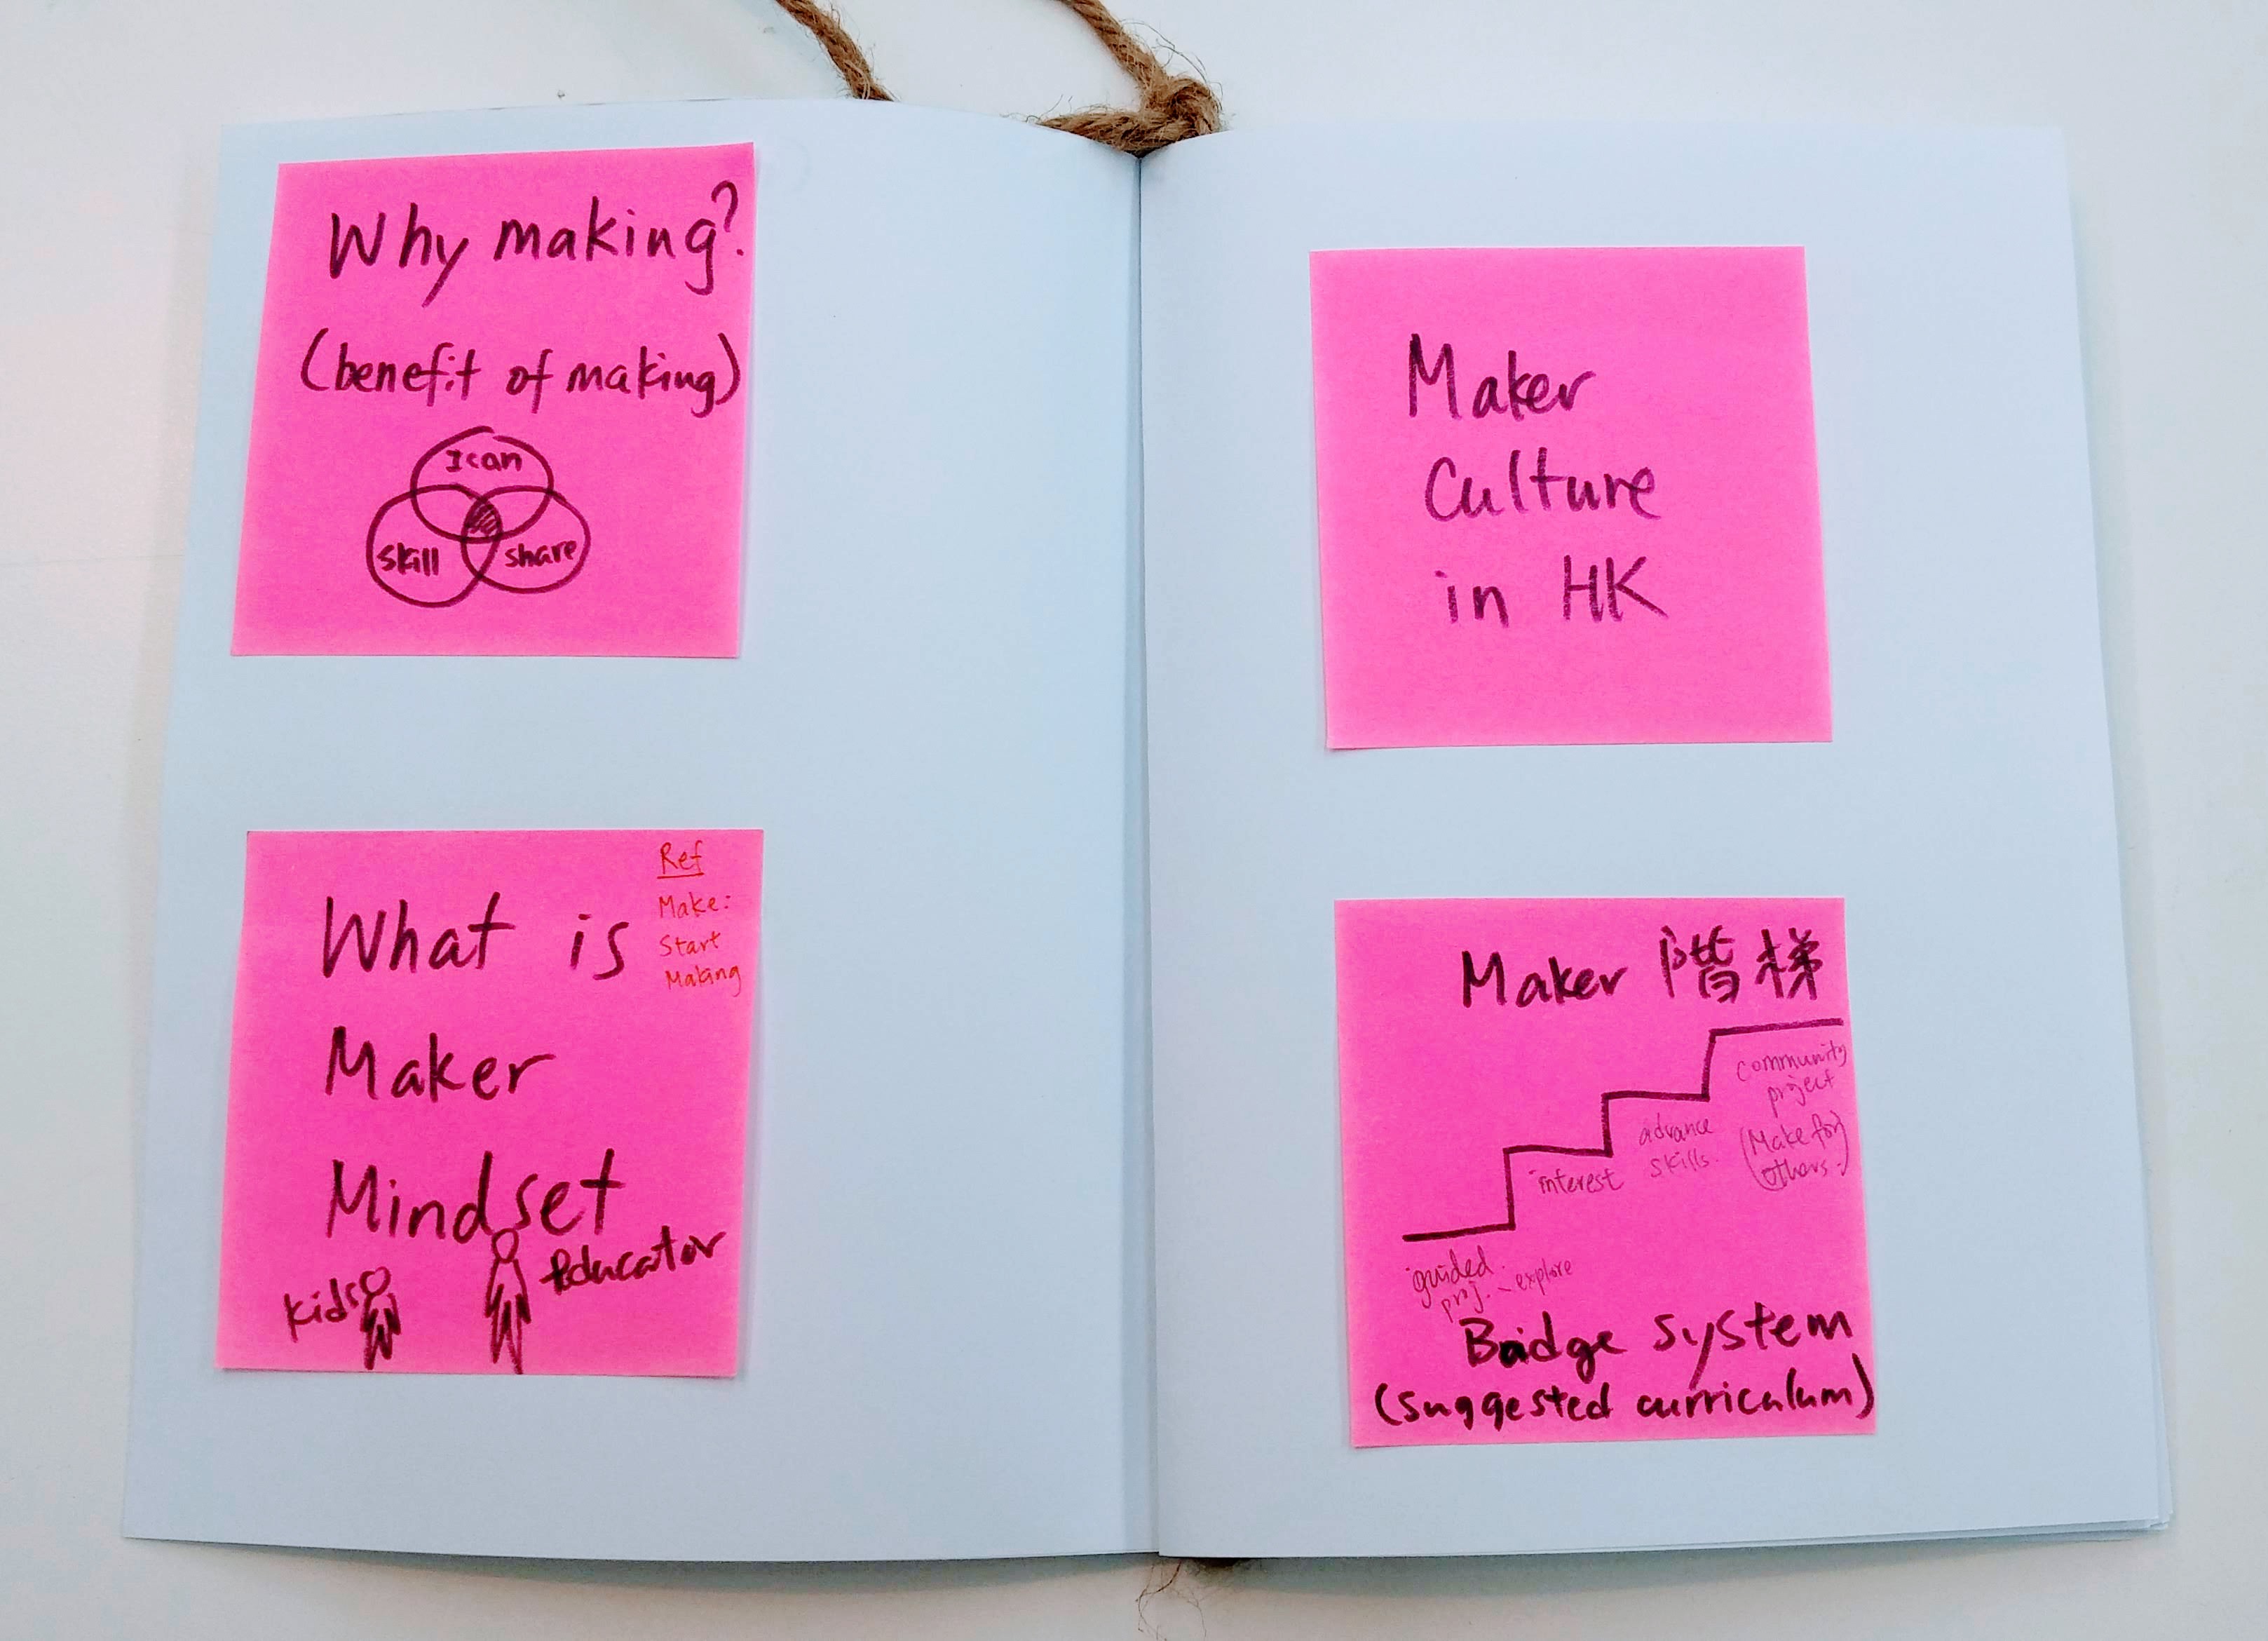 Why making?
(benefit of making)
I can
skill
share
What is
Ref
Make:
Start
Making
Maker
Mindset
kids
Educator
Maker
Culture
in HK
Maker 階梯
community
project
(Make for
others.)
advance
skills.
interest
guided
proj. - explore
Badge system
(suggested curriculum)